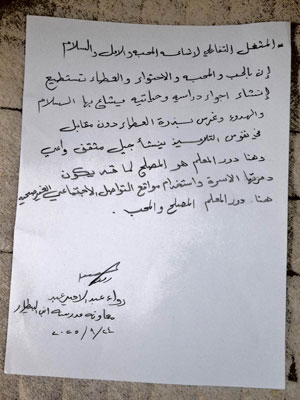 * المشغل التفاعلي لإشاعة المحبة والأمل والسلام
إن بالحب والمحبة والاحتواء والعطاء تستطيع
إنشاء اجواء دراسية وحياتية يشاع بها السلام
والهدوء وغرس بذرة العطاء دون مقابل
في نفوس التلاميذ لينشأ جيل مثقف واعي
وهنا دور المعلم هو المصلح لما قد يكون
دمرتها الاسرة واستخدام مواقع التواصل الاجتماعي الغير صحيح
هنا دور المعلم المصلح والمحب .
رواء عبد الامير
معاونة مدرسة ابن البيطار
٢٠٢٥/٩/٢٤